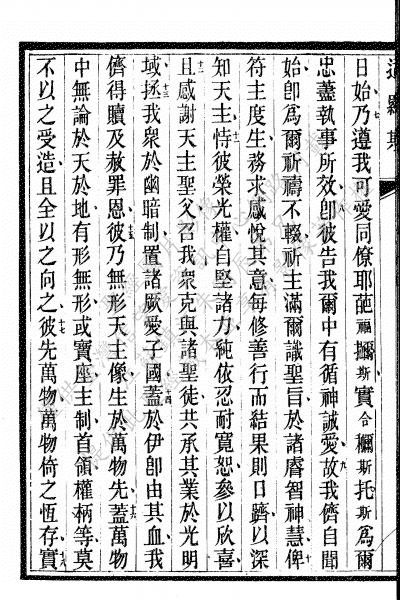 日始乃遵我可愛同僚耶葩福擲斯實合檷斯托斯爲爾
忠藎執事所效卽彼告我爾中有循神誠愛故我儕自聞
始卽爲爾祈禱不輟祈主滿爾識聖旨於諸睿智神慧俾
符主度生務求感悅其意每修善行而結果則日躋以深
知天主恃彼榮光權自堅諸力純依忍耐寬恕參以欣喜
且感謝天主聖父召我衆克與諸聖徒共承其業於光明
域拯我衆於幽暗制置諸厥愛子國蓋於伊卽由其血我
儕得贖及赦罪恩彼乃無形天主像生於萬物先蓋萬物
中無論於天於地有形無形或寶座主制首領權柄等莫
不以之受造且全以之向之彼先萬物萬物倚之恆存實